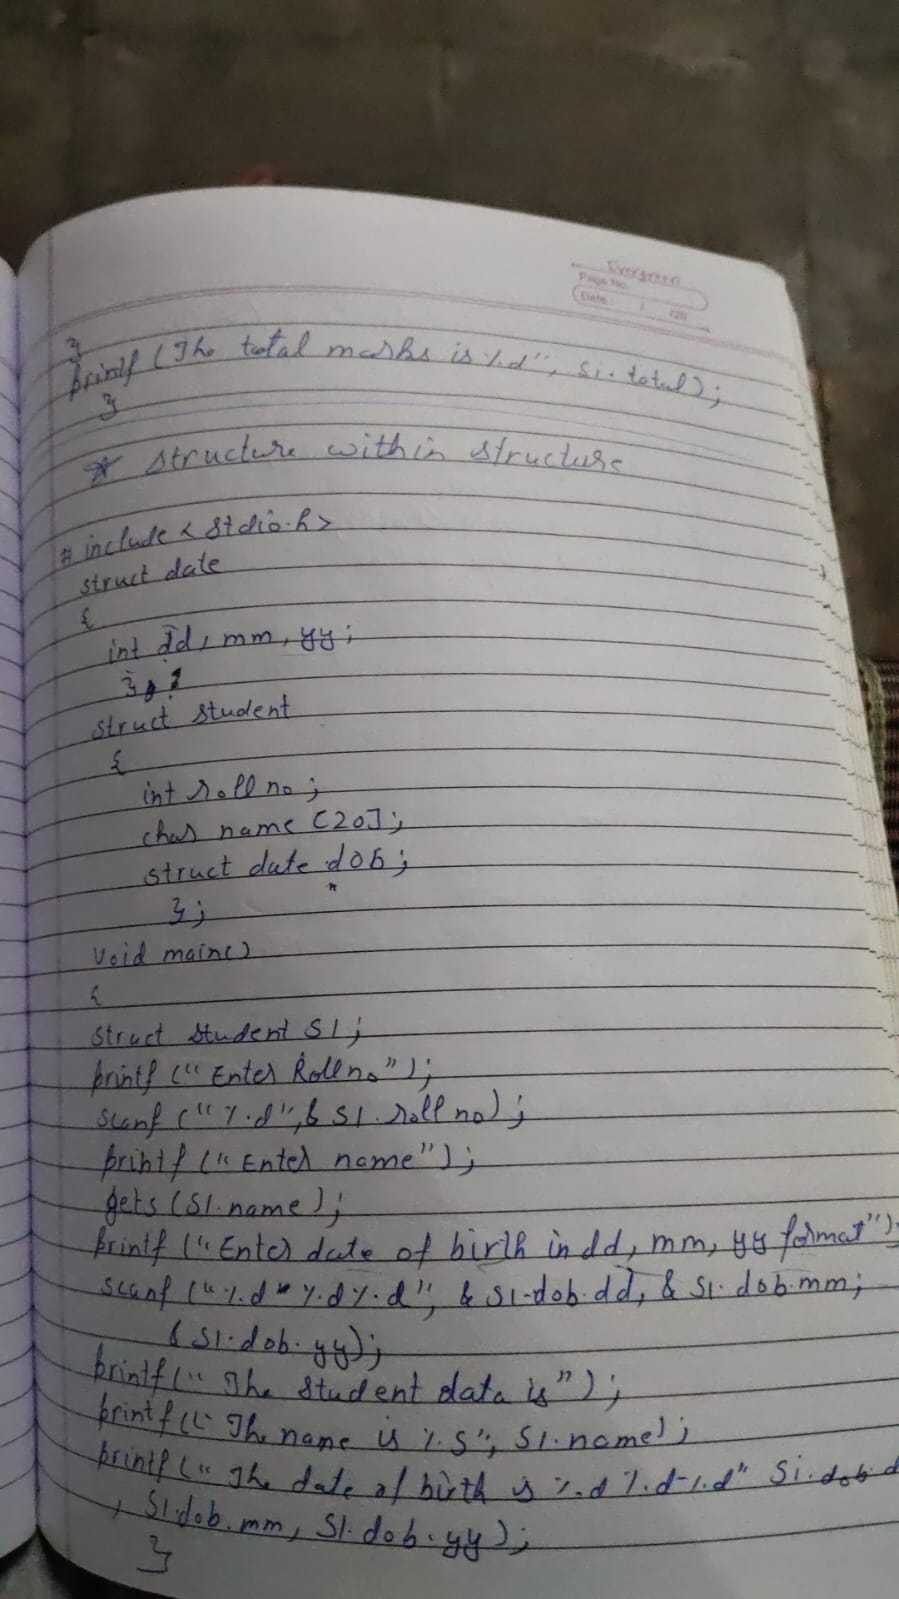 Evergreen
Page No.
Date: / /20
}
printf (The total marks is %d", S1.total);
}
* structure within structure
# include < stdio.h>
struct date
{
int dd, mm, yy;
};
struct student
{
int roll no;
char name [20];
struct date dob;
};
void main()
{
struct student S1;
printf (" Enter Roll no");
scanf (" %d", & S1.roll no);
printf (" Enter name");
gets (S1.name);
printf (" Enter date of birth in dd, mm, yy format");
scanf ("%d %d %d", & S1.dob.dd, & S1.dob.mm;
& S1.dob.yy);
printf (" The student data is");
printf (" The name is %s", S1.name);
printf (" The date of birth is %d %d-%d" S1.dob.d
, S1.dob.mm, S1.dob.yy);
}